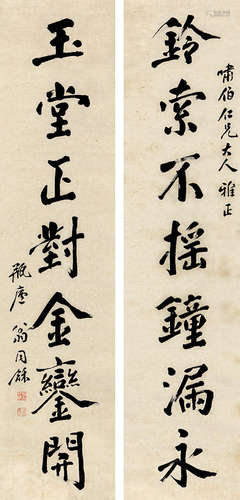 嘯伯仁兄大人雅正
鈴索不搖鐘漏永
玉堂正對金鑾開
瓶廬翁同龢